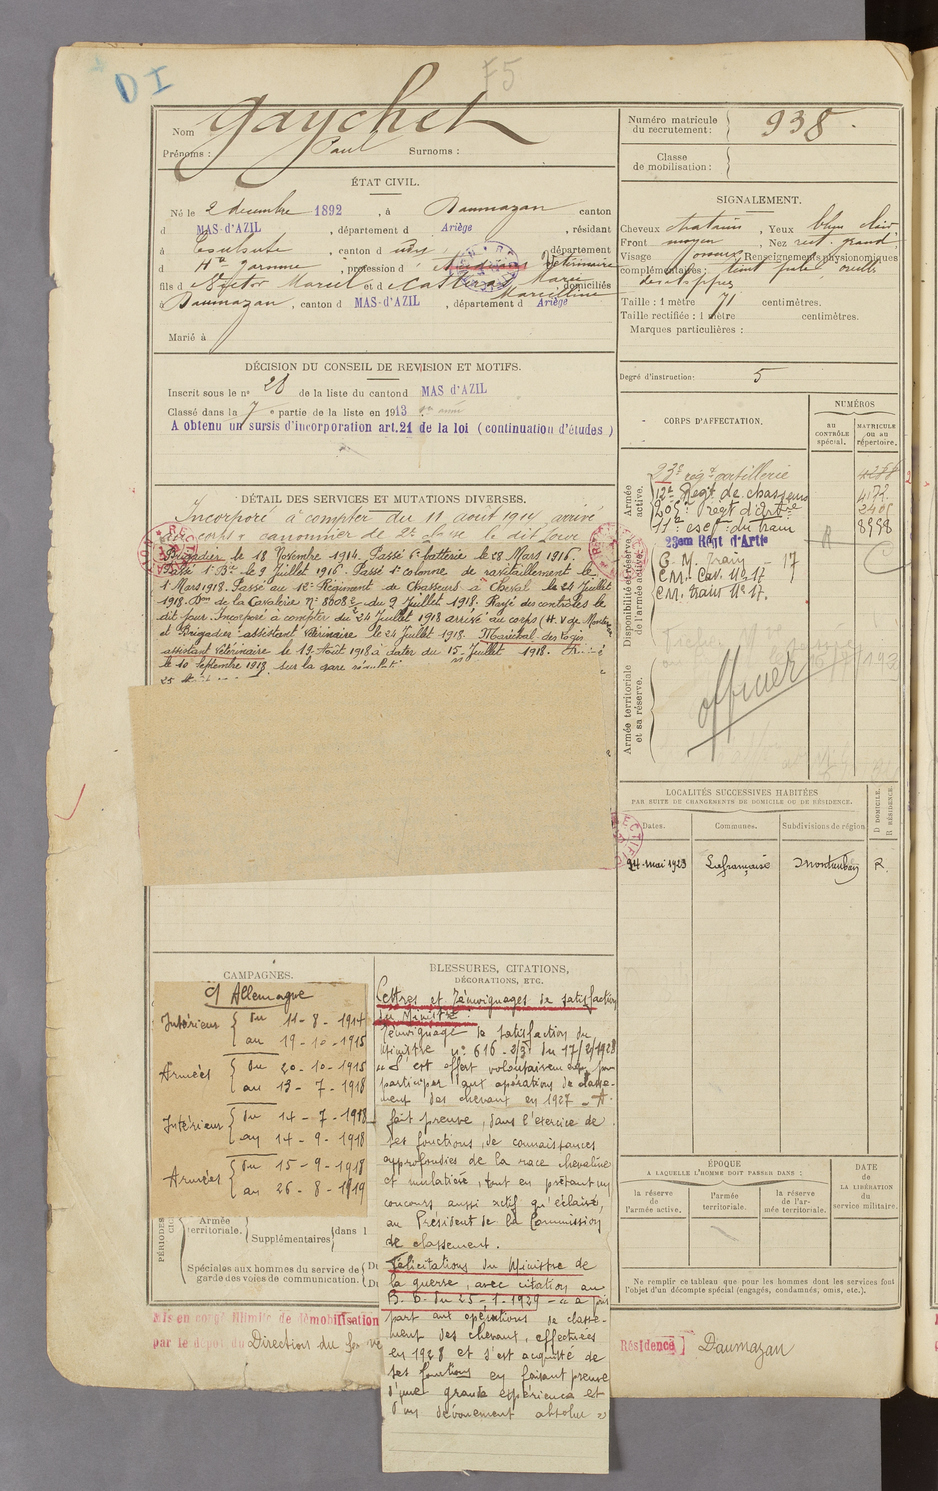 D I
F5
Nom Gaychet
Prénoms : Paul Surnoms :
ÉTAT CIVIL.
Né le 2 décembre 1892, à Daumazan canton
d MAS-d'AZIL, département d Ariège, résidant
à canton d département
d Hte Garonne, profession d Vétérinaire
fils d Marcel et de Marie domiciliés
Marcelline
à Daumazan, canton d MAS-d'AZIL, département d Ariège
Marié à
DÉCISION DU CONSEIL DE REVISION ET MOTIFS.
Inscrit sous le n° 28 de la liste du canton d MAS d'AZIL
Classé dans la 7e partie de la liste en 1913
A obtenu un sursis d'incorporation art.21 de la loi (continuation d'études)
DÉTAIL DES SERVICES ET MUTATIONS DIVERSES.
Incorporé à compter du 11 août 1914 arrivé
au corps & canonnier de 2e classe le dit jour
Brigadier le 18 Novembre 1914. Passé 6e batterie le 28 Mars 1916.
Passé 1e Bie le 9 Juillet 1916. Passé 1e colonne de ravitaillement le
1 Mars 1918. Passé au 12e Régiment de Chasseurs à Cheval le 24 Juillet
1918. Don de la Cavalerie n° 8608 2/ du 9 Juillet 1918. Rayé des contrôles le
dit jour. Incorporé à compter du 24 Juillet 1918 arrivé au corps
et Brigadier assistant vétérinaire le 24 Juillet 1918. Maréchal des logis
assistant vétérinaire le 19 Août 1918 à dater du 15 Juillet 1918.
le 10 Septembre 1918 sur la gare
CAMPAGNES.
C/ Allemagne
Intérieur { du 11-8-1914
au 19-10-1915
Armées { du 20-10-1915
au 13-7-1918
Intérieur { du 14-7-1918
au 14-9-1918
Armées { du 15-9-1918
au 26-8-1919
PÉRIODES
Armée territoriale. Supplémentaires dans l
Spéciales aux hommes du service de garde des voies de communication. { Du
Du
BLESSURES, CITATIONS,
DÉCORATIONS, ETC.
Lettres et Témoignages de satisfaction
du Ministre :
Témoignage de satisfaction du
Ministre n° 616-2/3 du 17/2/1928
"S'est offert volontairement pour
participer aux opérations de classe-
ment des chevaux en 1927 - A
fait preuve, dans l'exercice de
ses fonctions, de connaissances
approfondies de la race chevaline
et mulatière, tout en prêtant un
concours aussi actif qu'éclairé,
au Président de la Commission
de classement.
Félicitations du Ministre de
la guerre, avec citation au
B. O. du 25-1-1929 - "a pris
part aux opérations de classe-
ment des chevaux, effectuées
en 1928 et s'est acquitté de
ses fonctions en faisant preuve
d'une grande expérience et
d'un dévouement absolu"
Mis en congé illimité de démobilisation
par le dépôt du Direction du
Numéro matricule du recrutement : } 938.
Classe de mobilisation : }
SIGNALEMENT.
Cheveux chatains, Yeux bleu clair
Front moyen, Nez rect. grand
Visage Renseignements physionomiques
complémentaires : teint pâle
Taille : 1 mètre 71 centimètres.
Taille rectifiée : 1 mètre centimètres.
Marques particulières :
Degré d'instruction : 5
CORPS D'AFFECTATION.
NUMÉROS
au CONTRÔLE spécial.
MATRICULE ou au répertoire.
Armée active.
23e régt artillerie
12e Régt de chasseurs 4172
205e régt d'Artie 2405
11e escon du train 8598
Disponibilité et réserve de l'armée active.
23em Régt d'Artie
C. M. Train 17
C.M. Cav. N° 17
C.M. train N° 17.
Armée territoriale et sa réserve.
officier
LOCALITÉS SUCCESSIVES HABITÉES
PAR SUITE DE CHANGEMENTS DE DOMICILE OU DE RÉSIDENCE.
Dates. Communes. Subdivisions de région D DOMICILE. R RÉSIDENCE.
24 mai 1923 Lafrançaise Montauban R.
ÉPOQUE
A LAQUELLE L'HOMME DOIT PASSER DANS :
la réserve de l'armée active.
l'armée territoriale.
la réserve de l'armée territoriale.
DATE DE LA LIBÉRATION du service militaire.
Ne remplir ce tableau que pour les hommes dont les services font
l'objet d'un décompte spécial (engagés, condamnés, omis, etc.).
Résidence } Daumazan